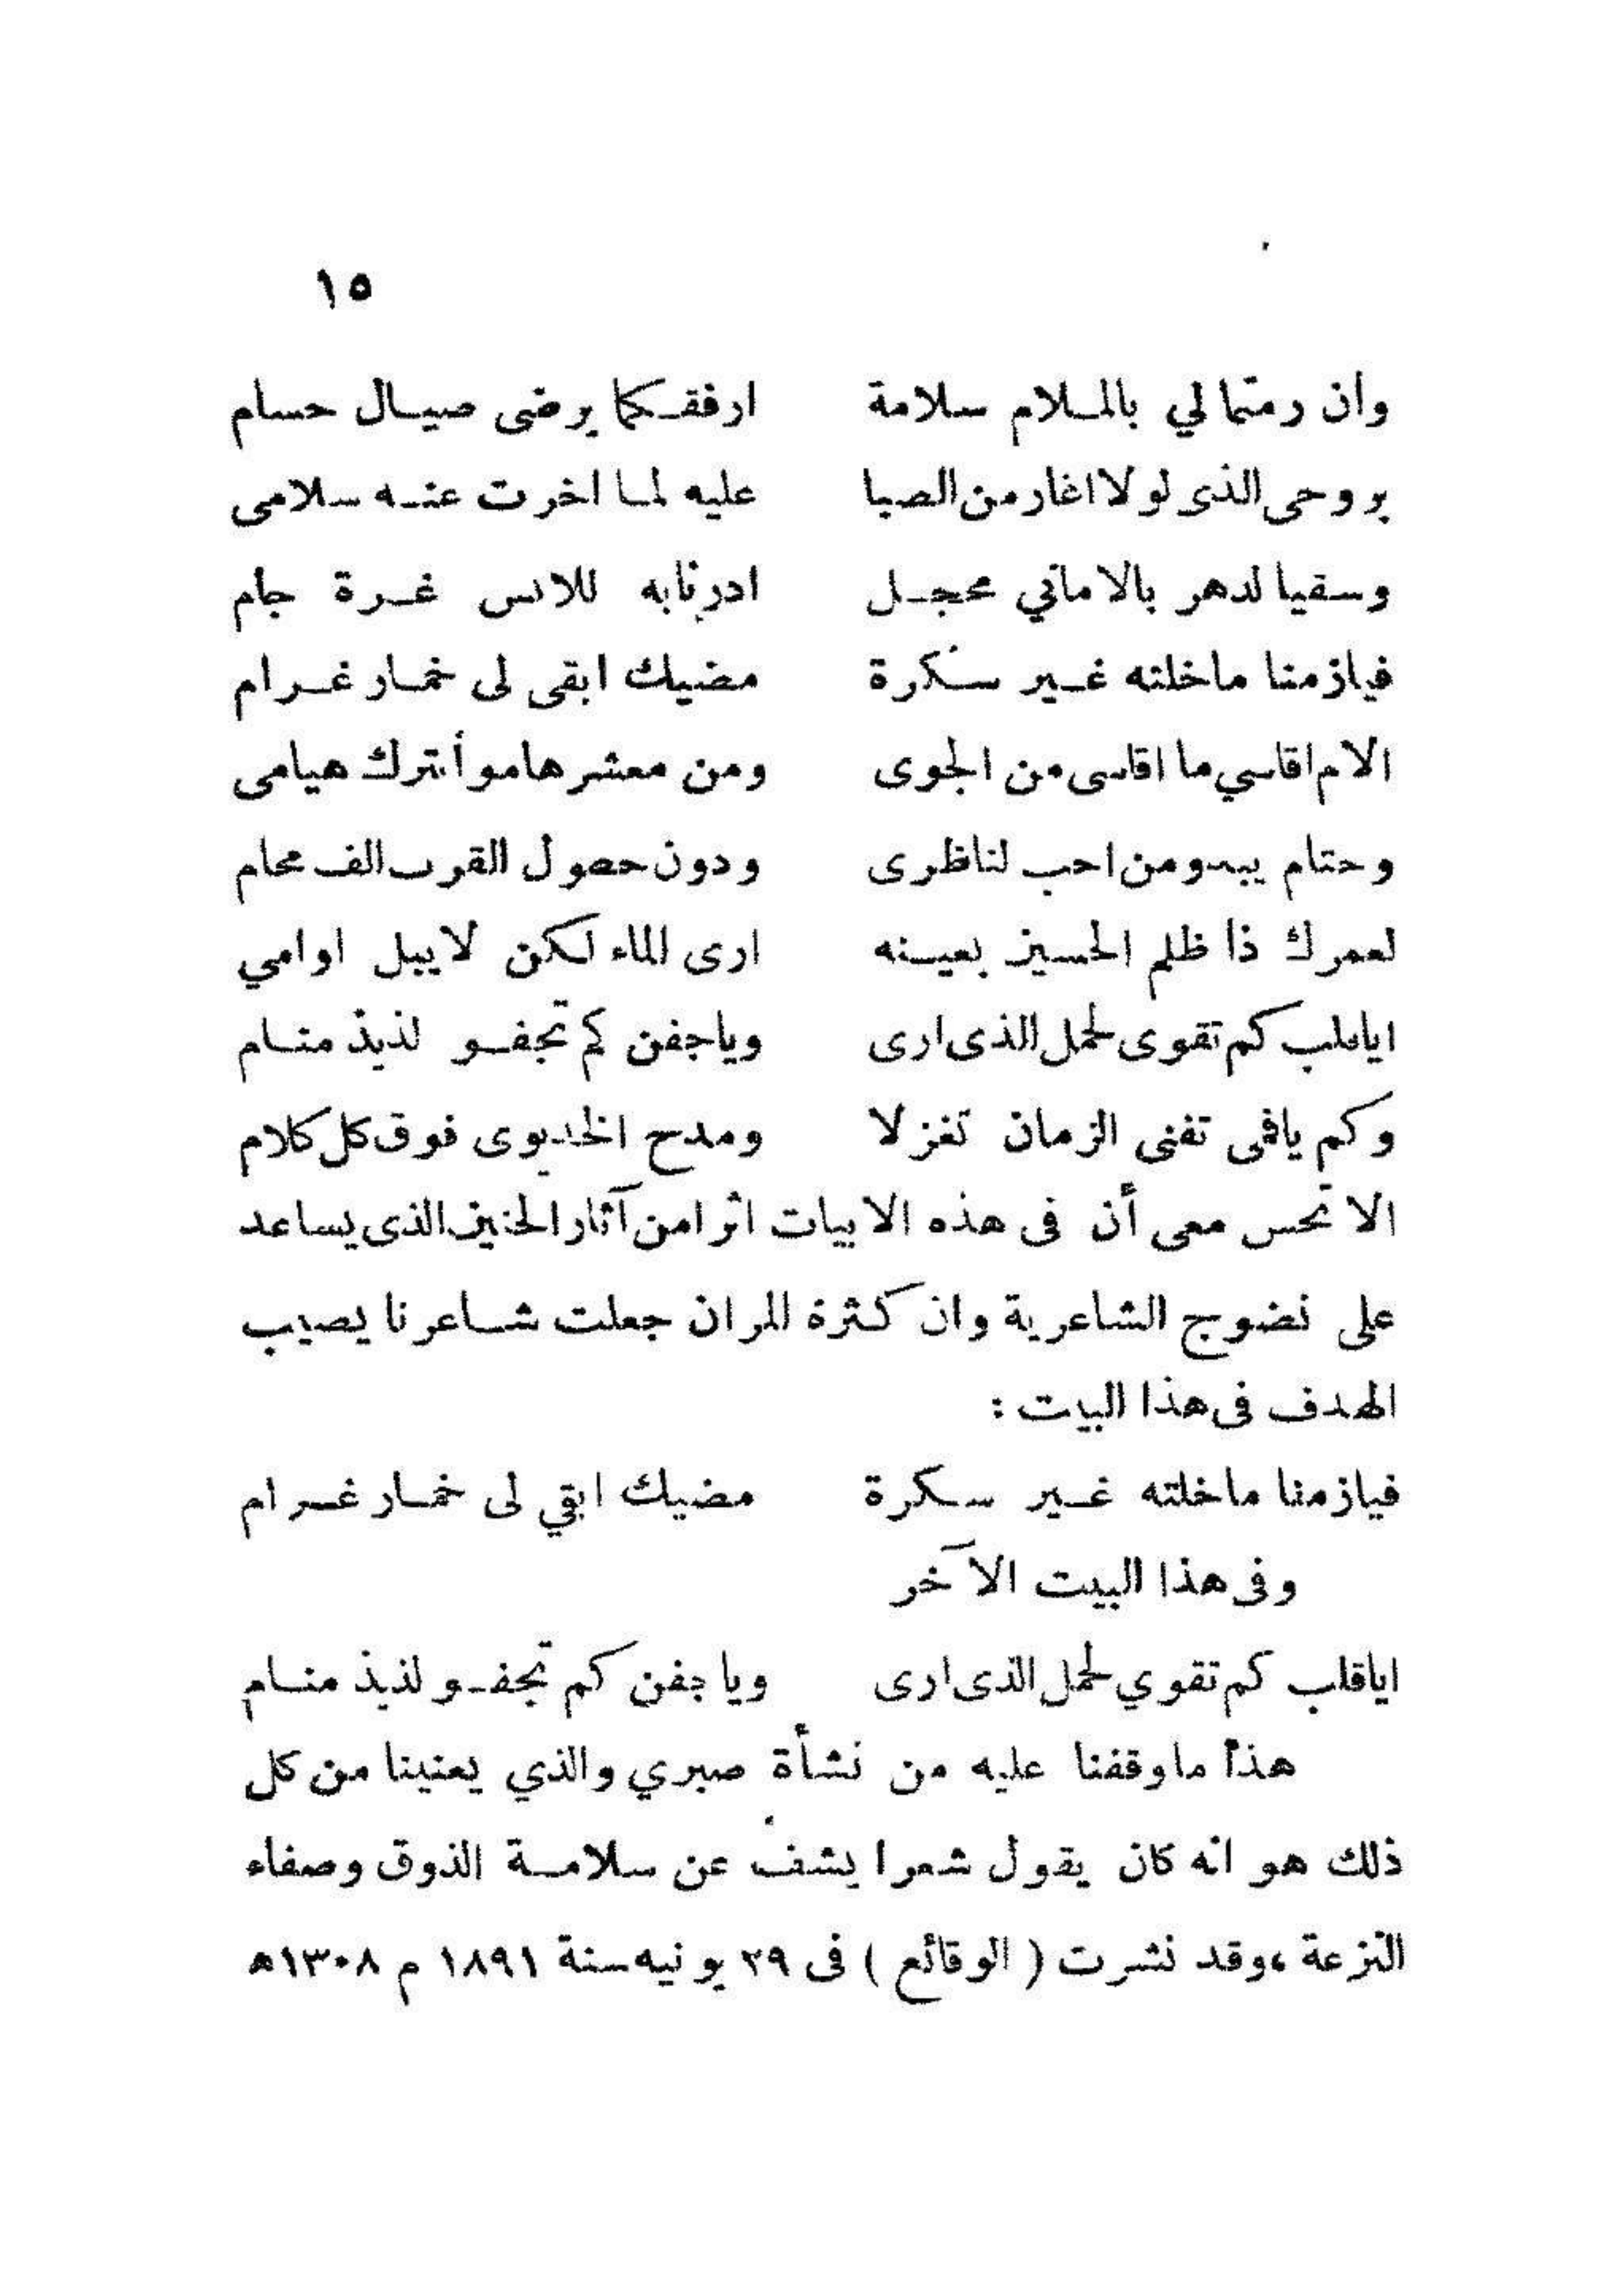 ١٥
وان رمتما لي بالمـلام سلامة ارفقـكما يرضى صيـال حسام
بروحى الذى لولا اغار من الصبا عليه لمـا اخرت عنـه سلامى
وسقيا لدهر بالاماني محجـل ادرنا به للانس غـرة جام
فيازمنا ماخلته غـير سـكرة مضيك ابقى لى خمـار غـرام
الام اقاسي ما اقاسى من الجوى ومن معشر هاموا أنترك هيامى
وحتام يبدو من احب لناظرى ودون حصول القرب الف محام
لعمرك ذا ظلم الحسين بعيـنه ارى الماء لكن لا يبل اوامي
اياقلب كم تقوى لحمل الذى ارى وياجفن كم تجفـو لذيذ منـام
وكم يافمى تفنى الزمان تغزلا ومدح الخديوى فوق كل كلام
الا تحس معى أن فى هذه الابيات اثرا من آثار الحنين الذى يساعد
على نضوج الشاعرية وان كثرة المران جعلت شـاعرنا يصيب
الهدف فى هذا البيت :
فيازمنا ماخلته غـير سـكرة مضيك ابقي لى خمـار غـرام
وفى هذا البيت الآخر
اياقلب كم تقوي لحمل الذى ارى ويا جفن كم تجفـو لذيذ منـام
هذا ماوقفنا عليه من نشأة صبري والذي يعنينا من كل
ذلك هو انه كان يقول شعرا يشف عن سلامـة الذوق وصفاء
النزعة ،وقد نشرت ( الوقائع ) فى ٢٩ يونيه سنة ١٨٩١ م ١٣٠٨ه